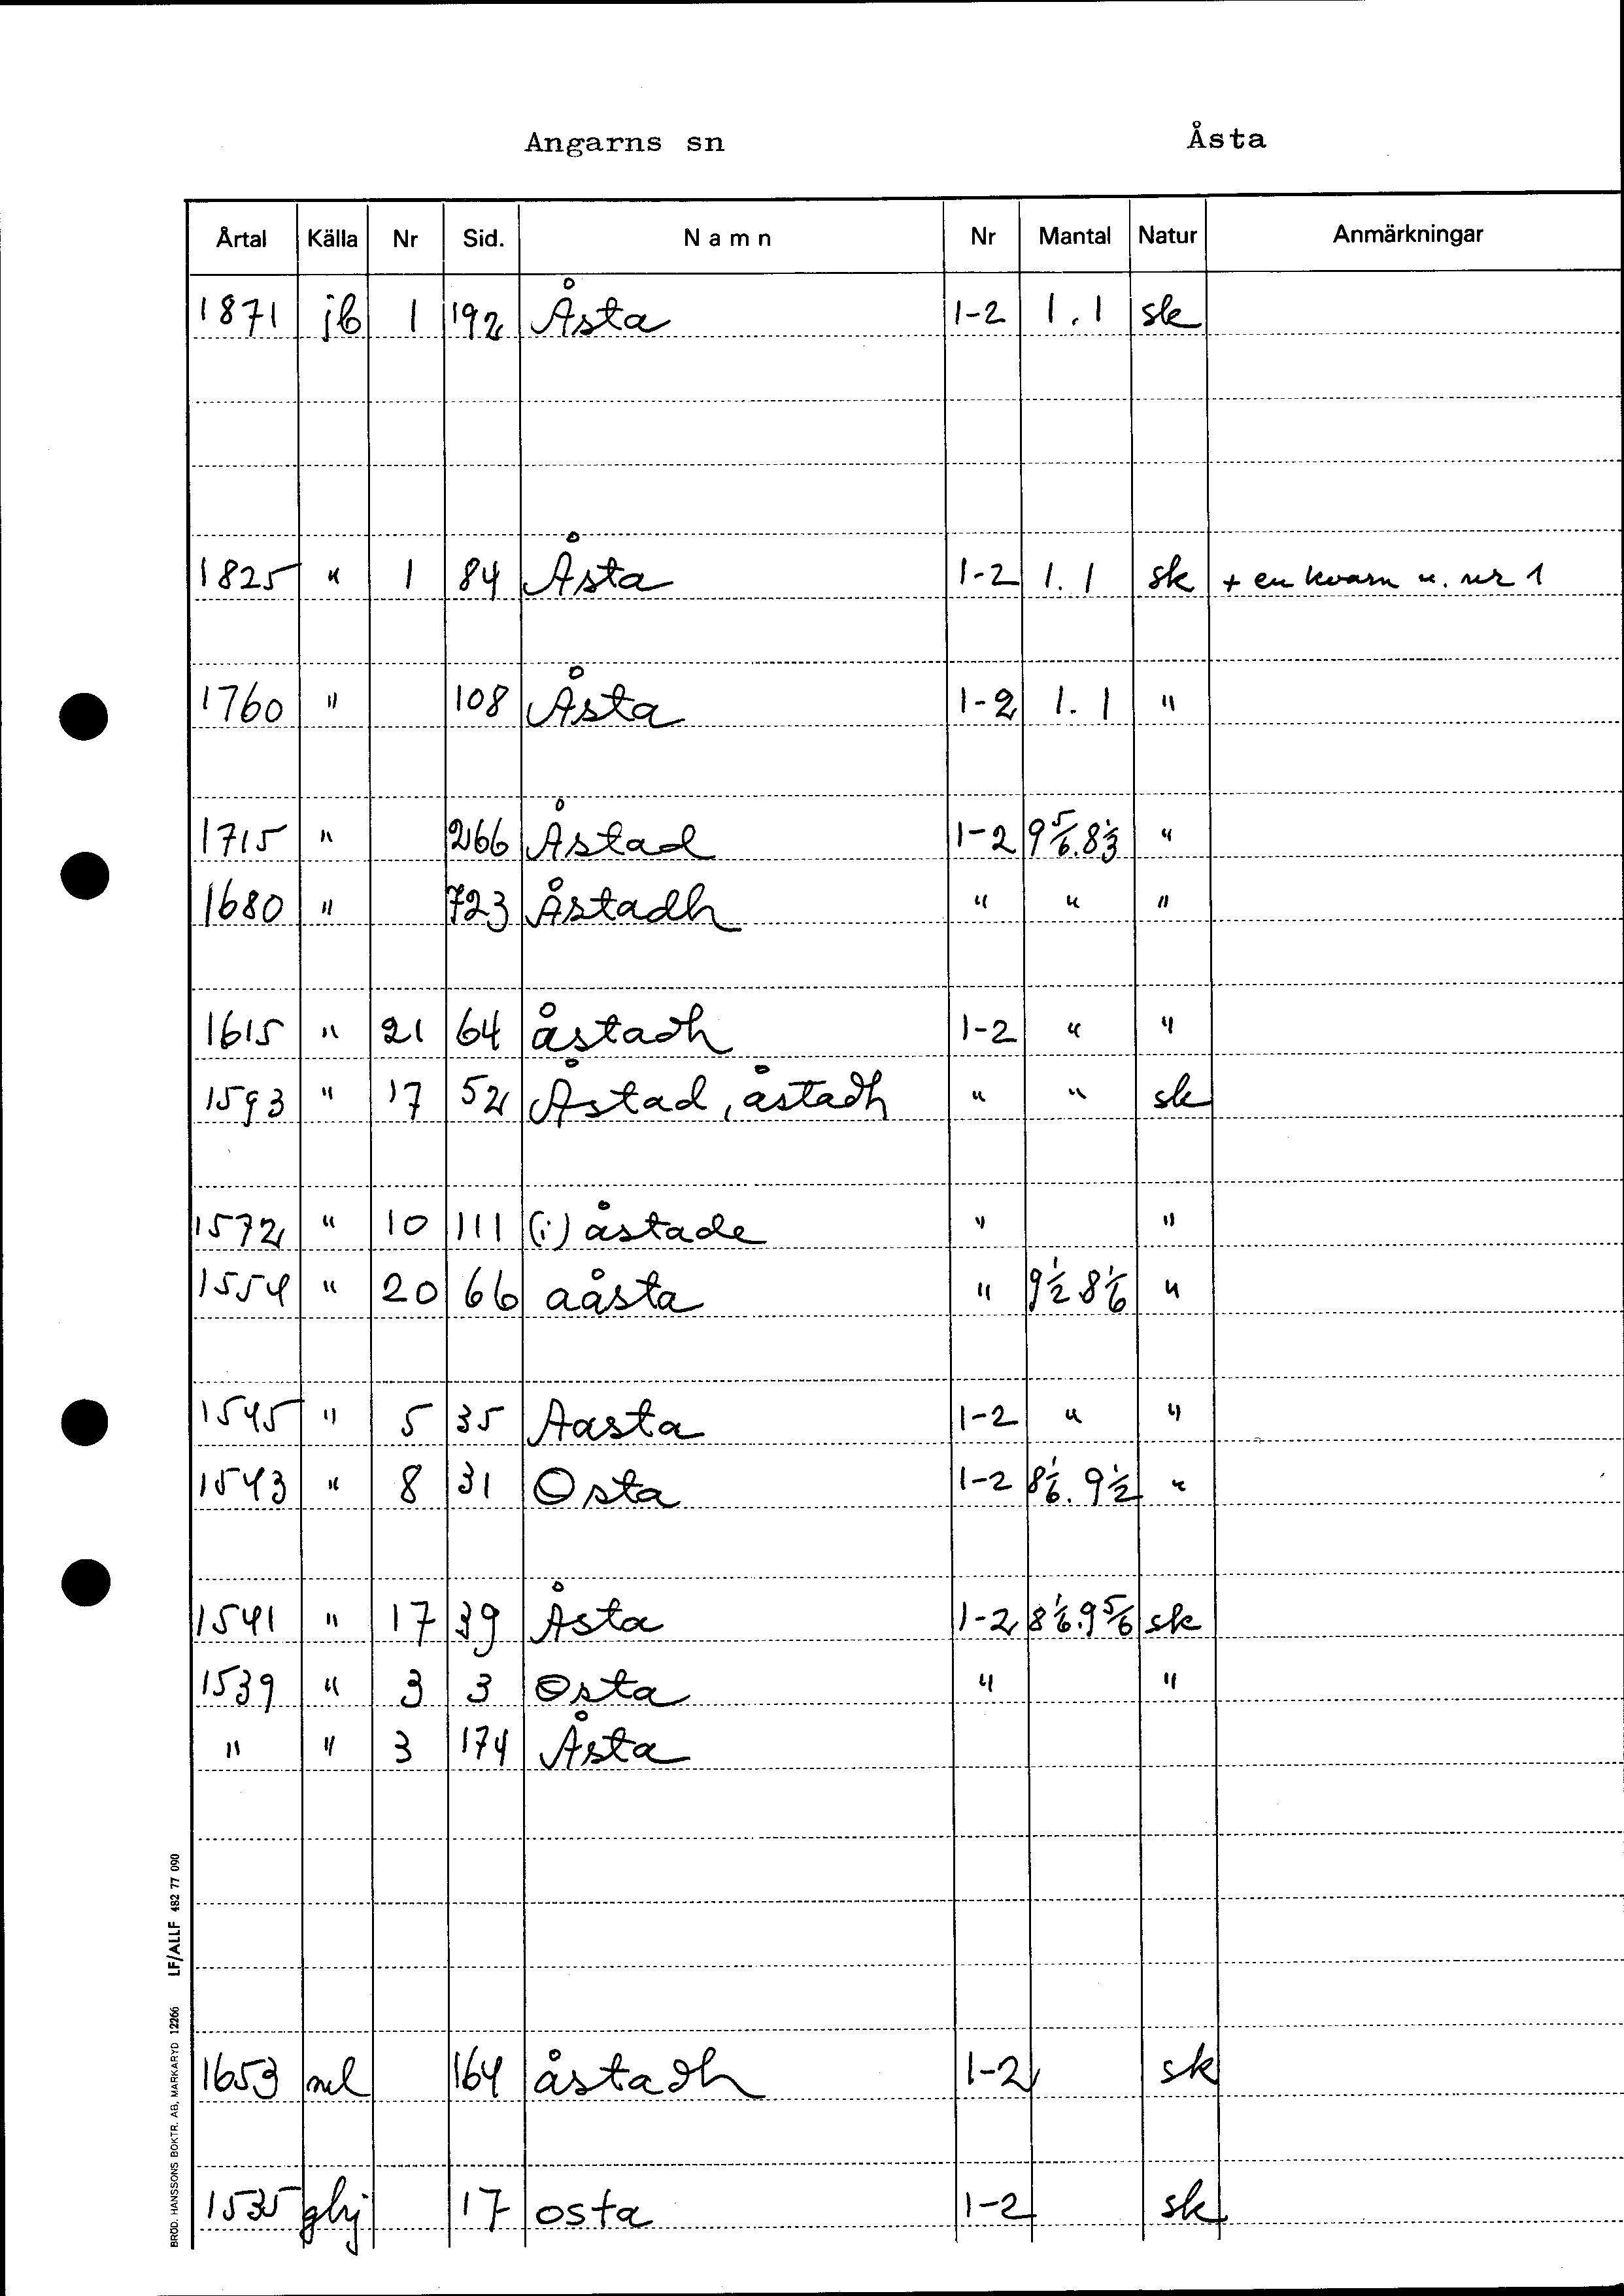 Angarns sn Åsta
Årtal Källa Nr Sid. Namn Nr Mantal Natur Anmärkningar
1871 jb 1 192 Åsta 1-2 1.1 sk
1825 " 1 84 Åsta 1-2 1.1 sk + en kvarn u. nr 1
1760 " 108 Åsta 1-2 1.1 "
1715 " 266 Åstad 1-2 9 5/6. 8 1/3 "
1680 " 723 Åstadh " " "
1615 " 21 64 åstadh 1-2 " "
1593 " 17 52 Åstad, åstadh " " sk
1572 " 10 111 (i) åstade " "
1554 " 20 66 aåsta " 9 1/2 8 1/6 "
1545 " 5 35 Aasta 1-2 " "
1543 " 8 31 Osta 1-2 8 1/6. 9 1/2 "
1541 " 17 39 Åsta 1-2 8 1/6. 9 5/6 sk
1539 " 3 3 Osta " "
" " 3 174 Åsta
1653 ml 164 åstadh 1-2 sk
1535 ghj 17 osta 1-2 sk
BRÖD. HANSSONS BOKTR. AB, MARKARYD 12266 LF/ALLF 482 77 090